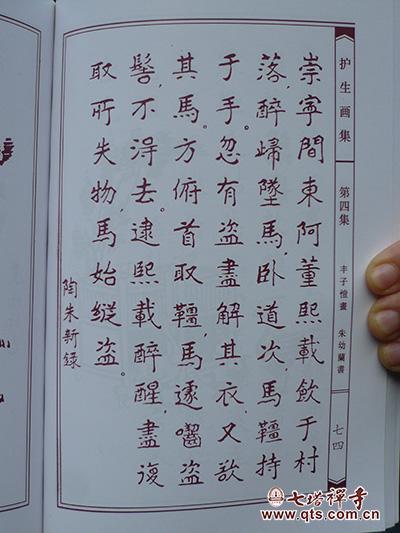 护生画集
第四集
丰子愷畫 朱幼蘭書
七四
崇寧間東阿董熙載飲于村
落,醉歸墜馬,臥道次,馬韁持
于手。忽有盜盡解其衣,又欲
其馬。方俯首取韁,馬遽嚙盜
髻,不淂去。逮熙載醉醒,盡復
取所失物,馬始縱盜。
陶朱新錄
七塔禪寺
www.qts.com.cn